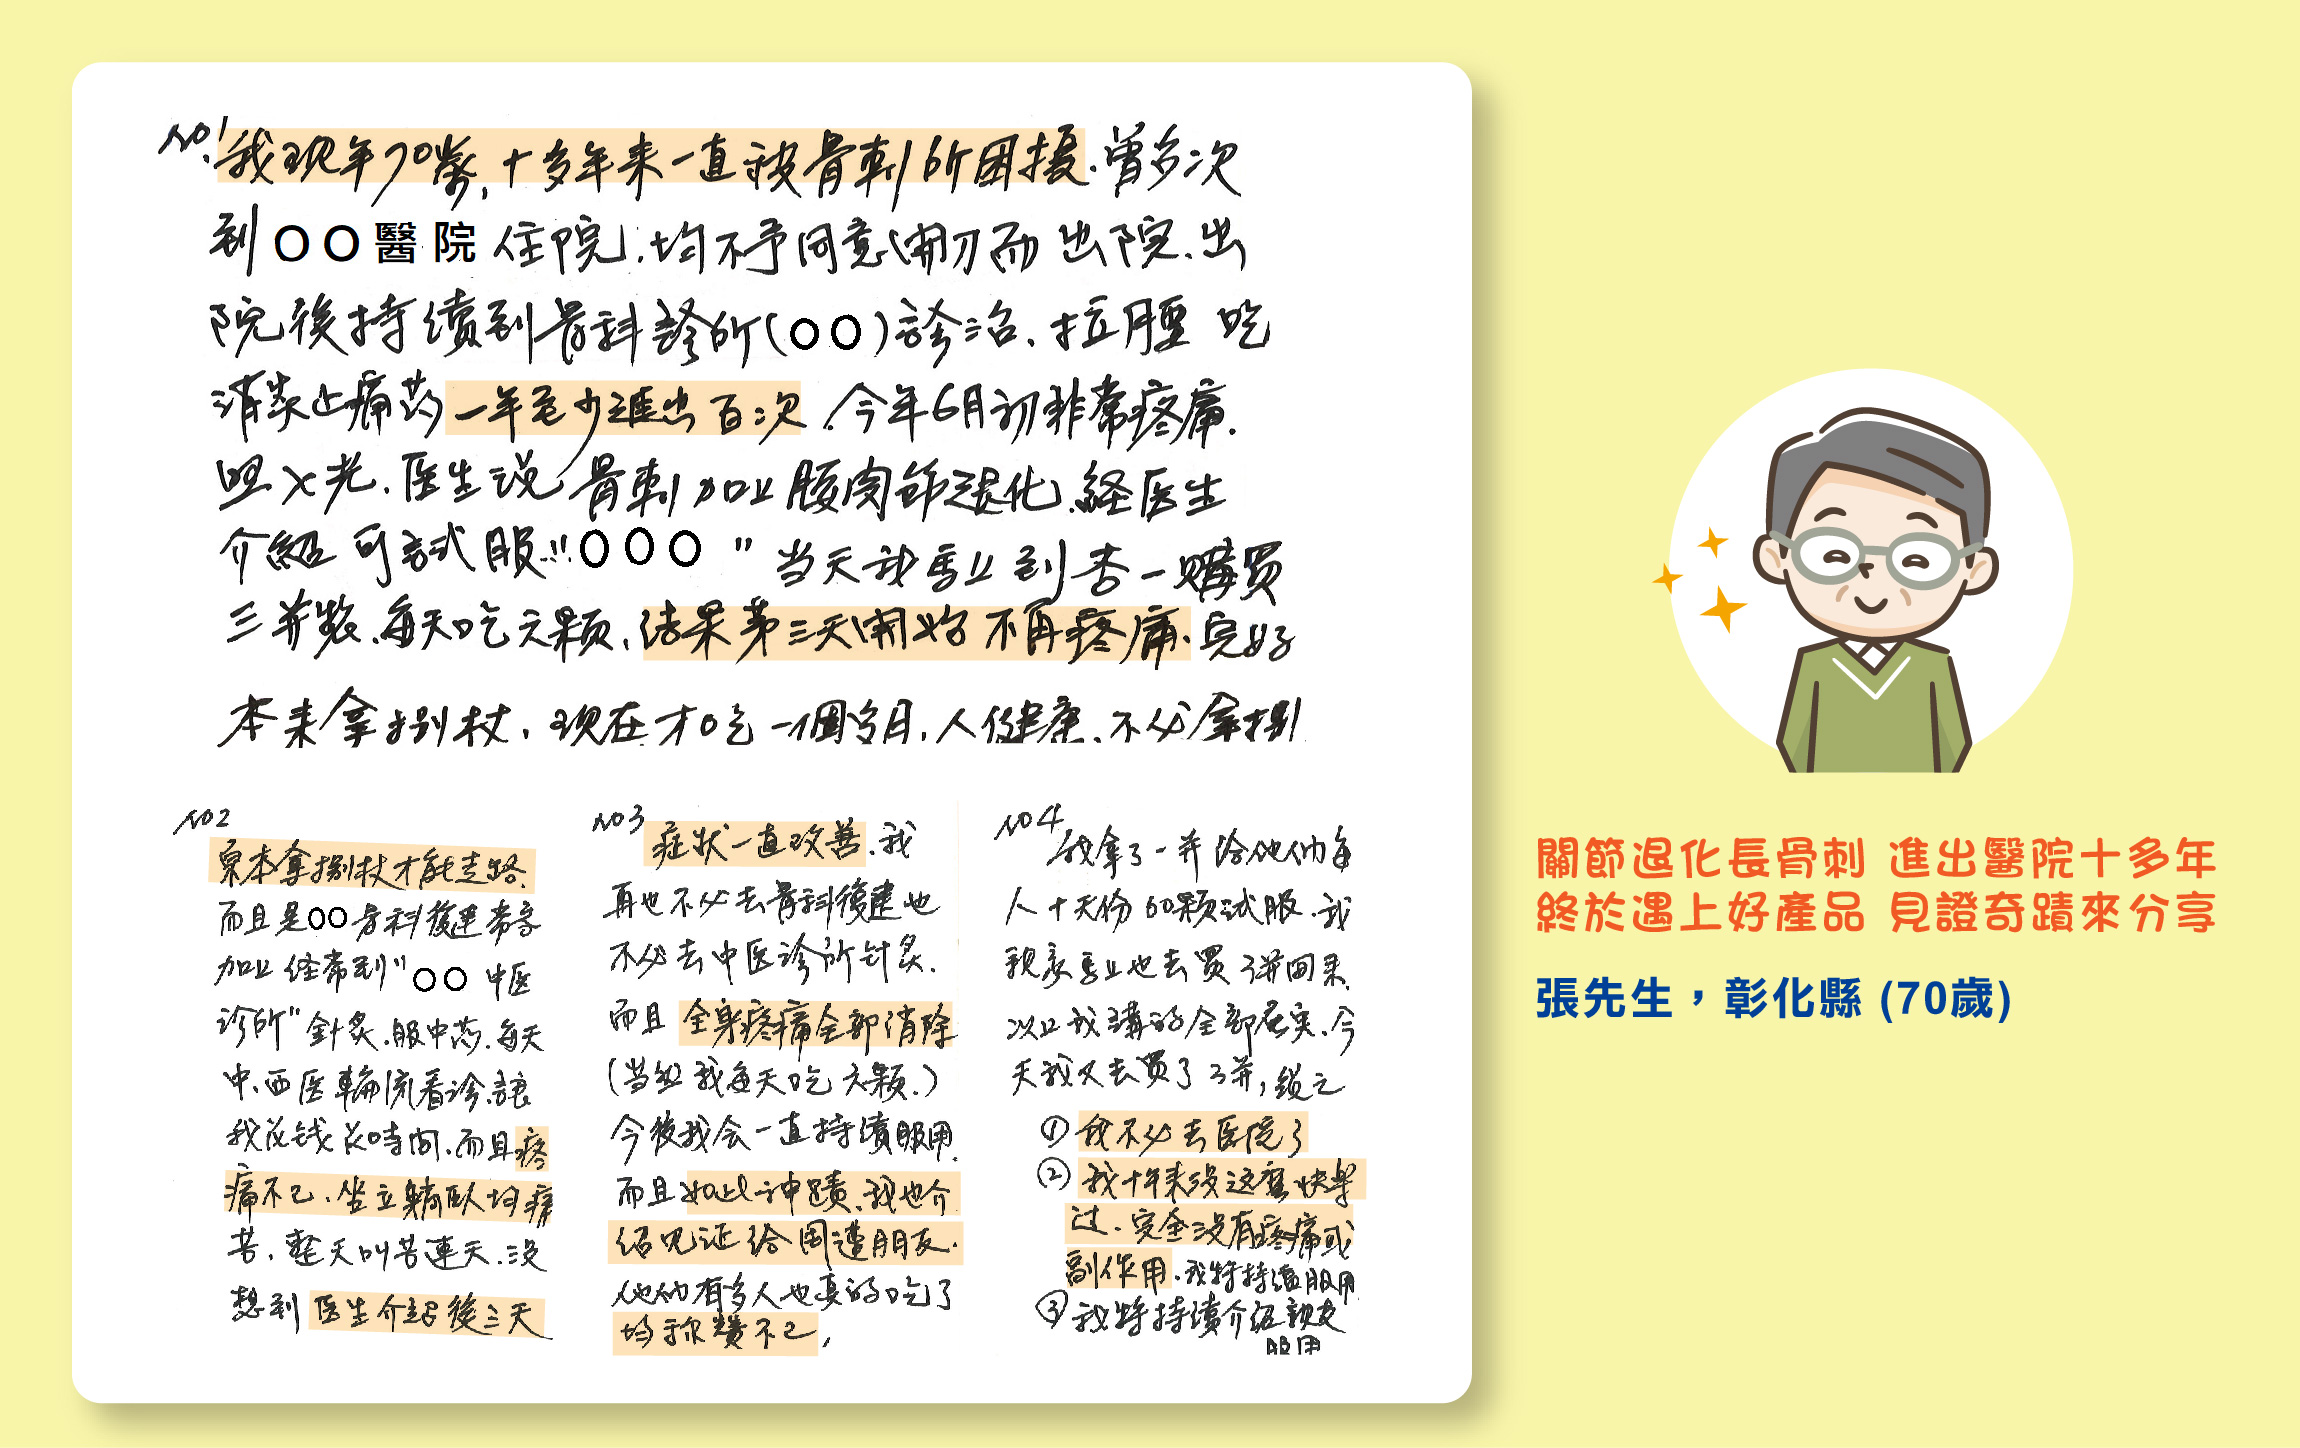 NO.1
我現年70歲,十多年來一直被骨刺所困擾.曾多次
到○○醫院住院,均不予同意開刀而出院.出
院後持續到骨科診所(○○)診治、拉腰 吃
消炎止痛药一年至少進出百次.今年6月初非常疼痛.
照X光.医生说骨刺加上腰肉節退化.経医生
介紹可試服"○○○"当天我馬上到杏一購買
三并裝.每天吃六颗,结果第三天開始不再疼痛.完好
本来拿拐杖,现在才吃一個多月,人健康.不必拿拐
NO2
原本拿拐杖才能走路.
而且是○○骨科復建常客
加上经常到"○○中医
诊所"針炙.服中药.每天
中.西医輪流看诊.讓
我花钱花時间.而且疼
痛不已.坐立躺臥均痛
苦.整天叫苦連天.没
想到医生介绍後三天
NO3
症状一直改善.我
再也不必去骨科復建也
不必去中医诊所针炙.
而且全身疼痛全部消除
(当然我每天吃六颗.)
今後我会一直持續服用.
而且如此神蹟.我也介
绍见证给周遭朋友.
他们有多人也真的吃了
均称赞不已,
NO4
我拿了一并给他们每
人十天份60颗试服.我
親家馬上也去買3并回来.
以上我講的全部属实.今
天我又去買了3并,總之
①我不必去医院了
②我十年来没这麼快樂
过.完全没有疼痛或
副作用.我将持續服用
③我将持續介绍親友
服用
關節退化長骨刺 進出醫院十多年
終於遇上好產品 見證奇蹟來分享
張先生，彰化縣 (70歲)